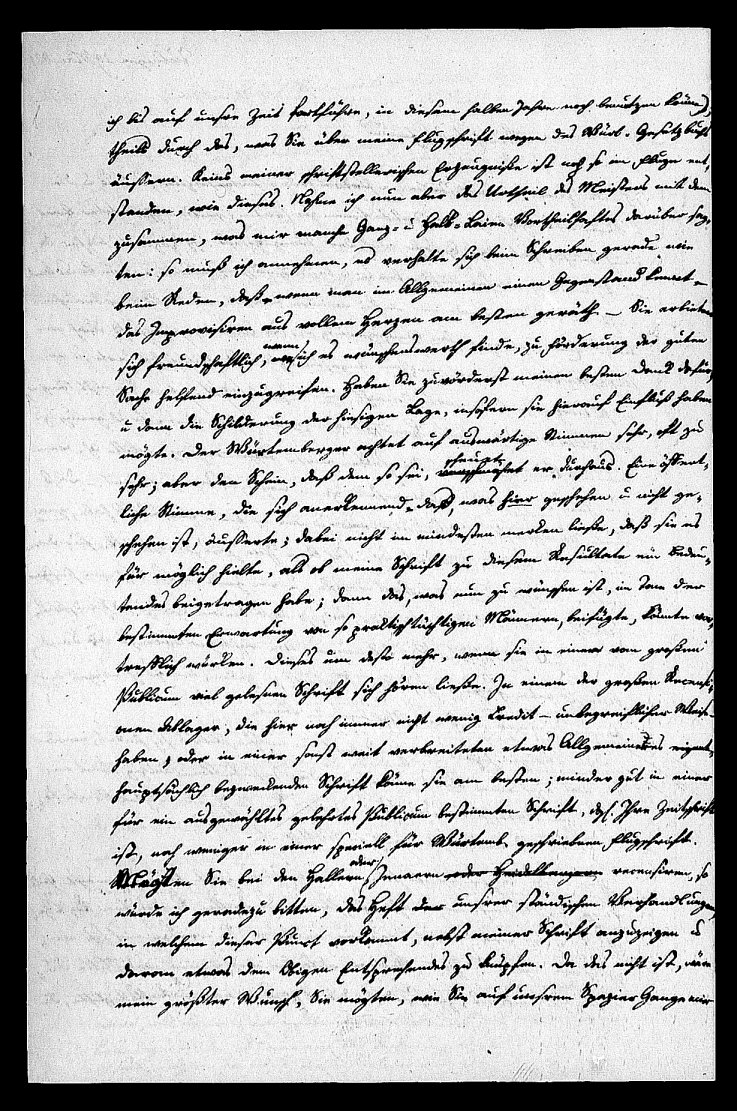 ich bis auf unsre Zeit fortführe, in diesem halben Jahre noch benutzen könne),
theils durch das, was Sie über meine Flugschrift wegen des Würt. Gesetzbuchs
äußern. Keins meiner schriftstellerischen Erzeugniße ist noch so im Fluge ent-
standen, wie dieses. Nehme ich nun aber das Urtheil des Meisters mit dem
zusammen, was mir manche Ganz- u Halb-Laien Vortheilhaftes darüber sag-
ten: so muß ich annehmen, es verhalte sich beim Schreiben gerade wie
beim Reden, daß, wenn man im Allgemeinen einen Gegenstand kennt,
das Improvisiren aus vollem Herzen am besten geräth. – Sie erbieten
sich freundschaftlich, wenn ich es wünschenswerth finde, zu Förderung der guten
Sache helfend einzugreifen. Haben Sie zuvörderst meinen besten Dank dafür,
u dann die Schilderung der hiesigen Lage, insofern sie hierauf Einfluß haben
mögte. Der Würtemberger achtet auf auswärtige Stimmen sehr, oft zu
sehr; aber den Schein, daß dem so sei, scheut er durchaus. Eine öffent-
liche Stimme, die sich anerkennend, daß, was hier geschehen u nicht ge-
schehen ist, äußerte; dabei nicht im mindesten merken ließe, daß sie es
für möglich hielte, als ob meine Schrift zu diesem Resultate ein Bedeu-
tendes beigetragen habe; dann das, was nun zu wünschen ist, im Tone der
bestimmten Erwartung von so praktischtüchtigen Männern, beifügte, könnte vor-
trefflich wirken. Dieses um desto mehr, wenn sie in einer vom großen
Publicum viel gelesnen Schrift sich hören ließe. In einem der großen Recensi-
onen Ablager, die hier noch immer nicht wenig Credit – unbegreiflicher Weise –
haben, oder in einer sonst weit verbreiteten etwas Allgemeineres
hauptsächlich bezweckenden Schrift käme sie am besten; minder gut in einer
für ein ausgewähltes gelehrtes Publicum bestimmten Schrift, dgl. Ihre Zeitschrift
ist, noch weniger in einer speciell für Würtemb. geschriebenen Flugschrift.
Mögten Sie bei den Hallern oder Jenaern oder Heidelbergern recensiren, so
würde ich geradezu bitten, das Heft der unsrer ständischen Verhandlungen,
in welchem dieser Punct vorkommt, nebst meiner Schrift anzuzeigen u
daran etwas dem Obigen Entsprechendes zu knüpfen. Da das nicht ist, wäre
mein größter Wunsch, Sie mögten, wie Sie auf unsrem Spazier Gange mir